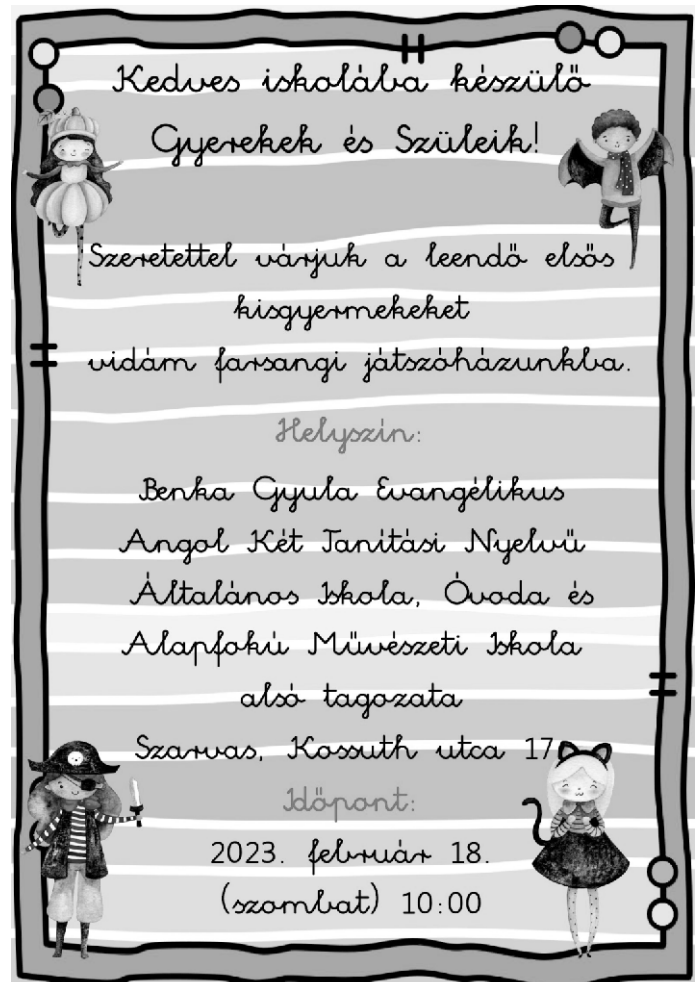 Kedves iskolába készülő
Gyerekek és Szüleik!
Szeretettel várjuk a leendő elsős
kisgyermekeket
vidám farsangi játszóházunkba.
Helyszín:
Benka Gyula Evangélikus
Angol Két Tanítási Nyelvű
Általános Iskola, Óvoda és
Alapfokú Művészeti Iskola
alsó tagozata
Szarvas, Kossuth utca 17.
Időpont:
2023. február 18.
(szombat) 10:00